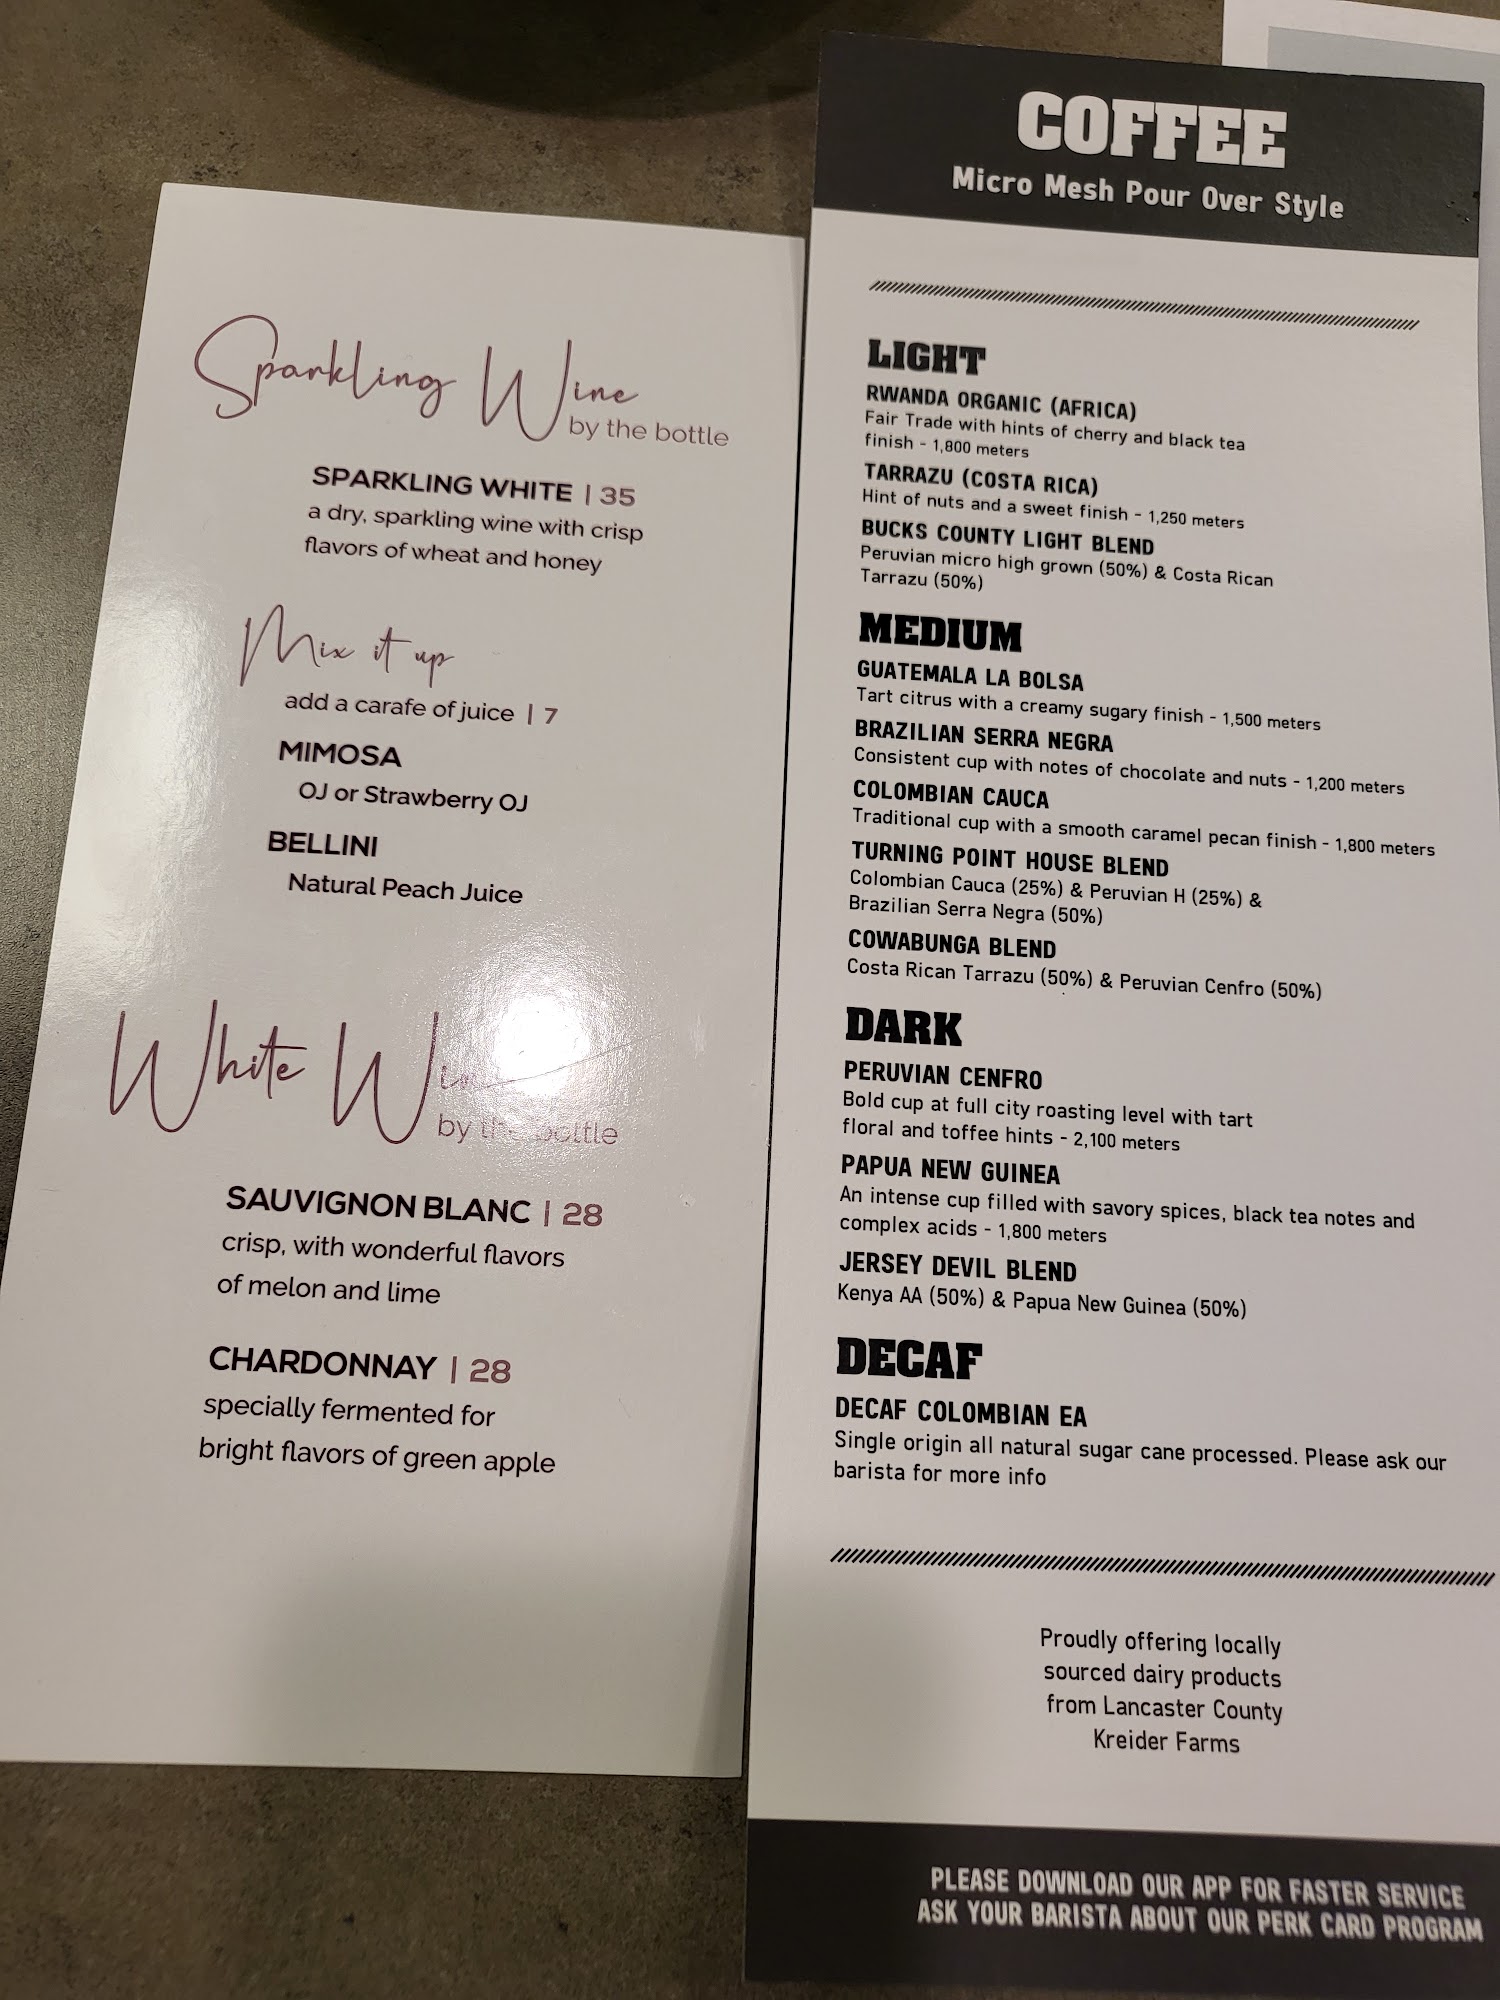 Sparkling Wine
by the bottle
SPARKLING WHITE | 35
a dry, sparkling wine with crisp
flavors of wheat and honey
Mix it up
add a carafe of juice | 7
MIMOSA
OJ or Strawberry OJ
BELLINI
Natural Peach Juice
White Wine
by the bottle
SAUVIGNON BLANC | 28
crisp, with wonderful flavors
of melon and lime
CHARDONNAY | 28
specially fermented for
bright flavors of green apple
COFFEE
Micro Mesh Pour Over Style
LIGHT
RWANDA ORGANIC (AFRICA)
Fair Trade with hints of cherry and black tea
finish - 1,800 meters
TARRAZU (COSTA RICA)
Hint of nuts and a sweet finish - 1,250 meters
BUCKS COUNTY LIGHT BLEND
Peruvian micro high grown (50%) & Costa Rican
Tarrazu (50%)
MEDIUM
GUATEMALA LA BOLSA
Tart citrus with a creamy sugary finish - 1,500 meters
BRAZILIAN SERRA NEGRA
Consistent cup with notes of chocolate and nuts - 1,200 meters
COLOMBIAN CAUCA
Traditional cup with a smooth caramel pecan finish - 1,800 meters
TURNING POINT HOUSE BLEND
Colombian Cauca (25%) & Peruvian H (25%) &
Brazilian Serra Negra (50%)
COWABUNGA BLEND
Costa Rican Tarrazu (50%) & Peruvian Cenfro (50%)
DARK
PERUVIAN CENFRO
Bold cup at full city roasting level with tart
floral and toffee hints - 2,100 meters
PAPUA NEW GUINEA
An intense cup filled with savory spices, black tea notes and
complex acids - 1,800 meters
JERSEY DEVIL BLEND
Kenya AA (50%) & Papua New Guinea (50%)
DECAF
DECAF COLOMBIAN EA
Single origin all natural sugar cane processed. Please ask our
barista for more info
Proudly offering locally
sourced dairy products
from Lancaster County
Kreider Farms
PLEASE DOWNLOAD OUR APP FOR FASTER SERVICE
ASK YOUR BARISTA ABOUT OUR PERK CARD PROGRAM